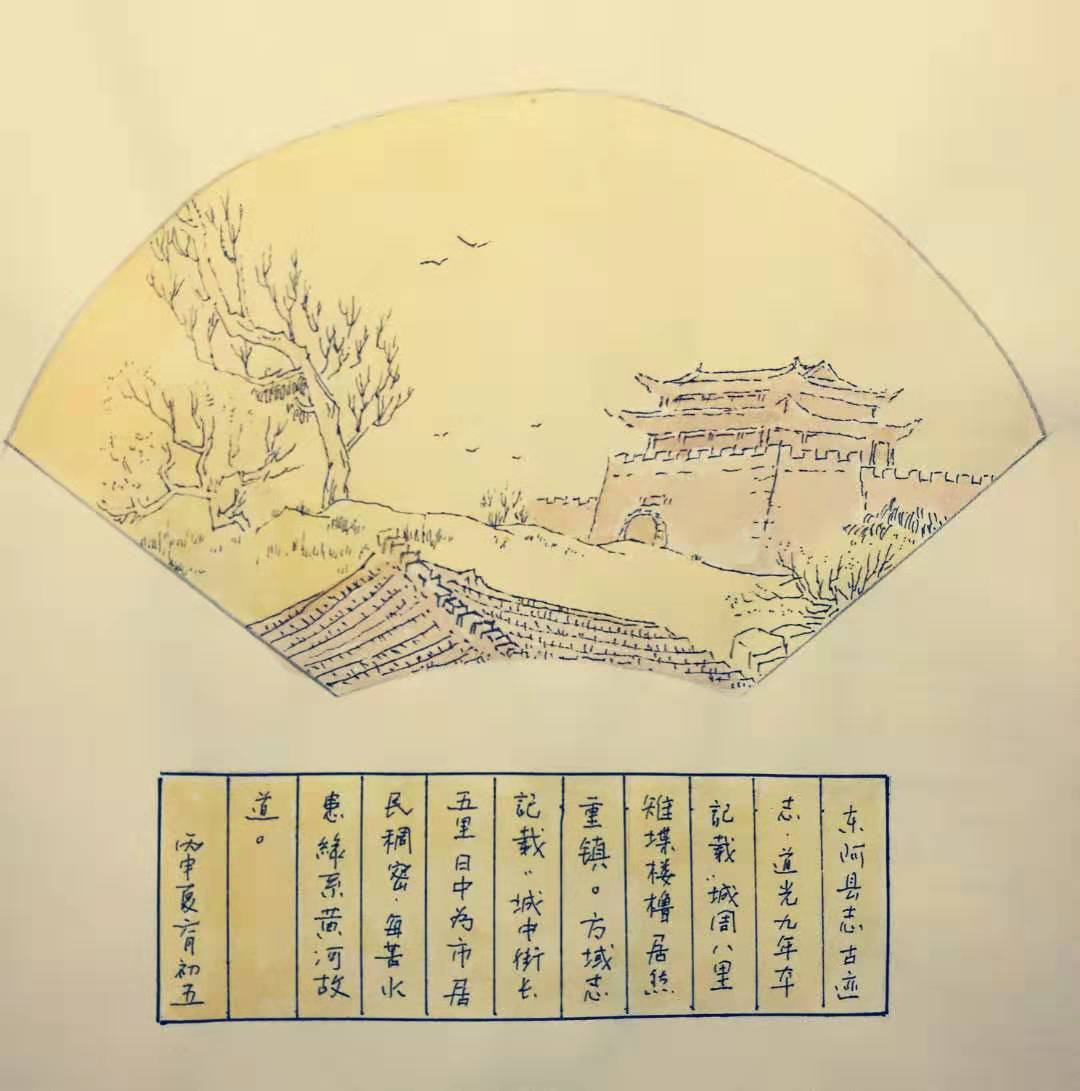 东阿县志古迹
志·道光九年本
記载·城周八里
雉堞楼櫓居然
重镇。方域志
記载:城中街长
五里日中为市居
民稠密·每苦水
患缘系黄河故
道。
丙申夏六月初五